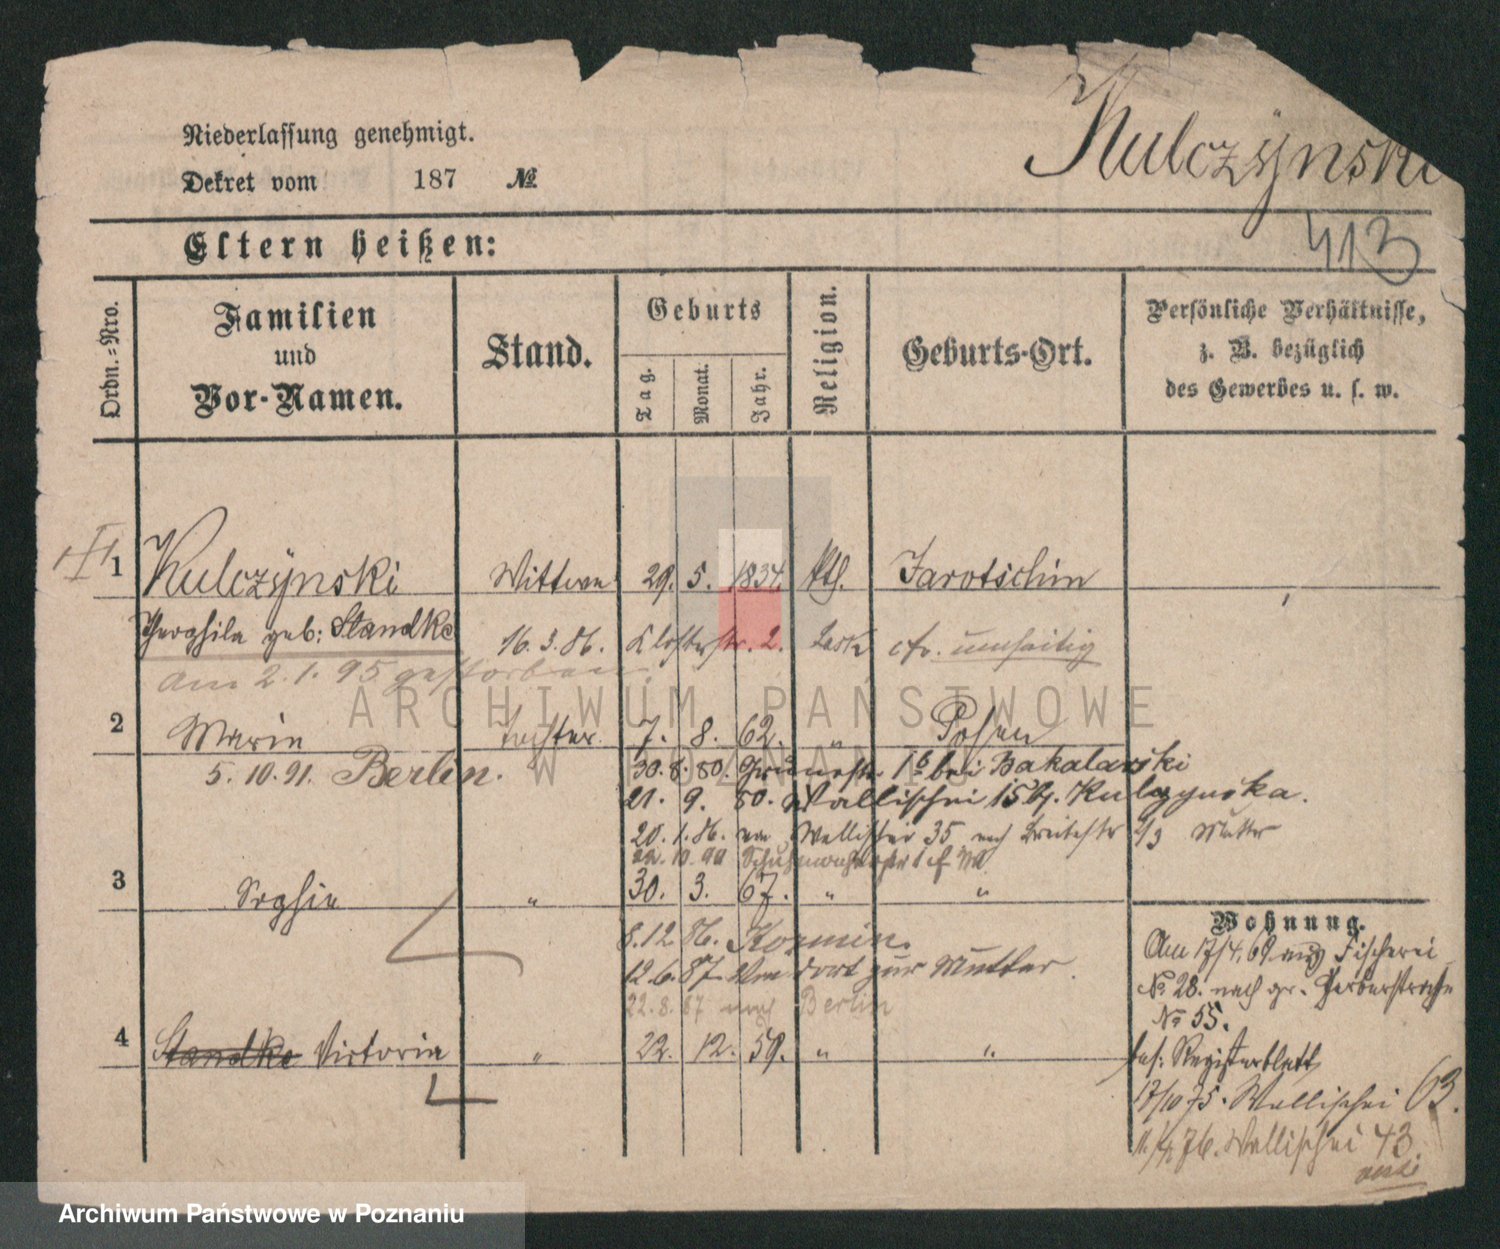 Niederlassung genehmigt.
Dekret vom 187 №
Kulczynski
413
Eltern heißen:
Ordn.-Nro.
Familien
und
Vor-Namen.
Stand.
Geburts
Tag.
Monat.
Jahr.
Religion.
Geburts-Ort.
Persönliche Verhältnisse,
z. B. bezüglich
des Gewerbes u. s. w.
1 Kulczynski Wittwe 29. 5. 1834. kth. Jarotschin
geb: Standke 16. 3. 86. Klosterstr. 2. cfr. umseitig
am 2.1.95 gestorben.
ARCHIWUM PAŃSTWOWE
W POZNANIU
2 Marie Tochter 7. 8. 62. " Posen
5. 10. 91. Berlin.
30. 8. 80. bei Bakalarski
21. 9. 80. Wallischei 15 Kulczynska.
20. 1. 86. von Wallischei 35 nach Breitestr Mutter
3 Sophie " 30. 3. 67. " "
8. 12. 86. Kozmin.
12. 6. 87 Von dort zur Mutter.
22. 8. 87 nach Berlin
4 Standke Victoria " 22. 12. 58. " "
Wohnung.
Am 17/4. 69 aus Fischerei
№ 28. nach gr. Gerberstrasse
№ 55.
bes: Registerblatt
17/10 75. Wallischei 63.
76. Wallischei 43.
Archiwum Państwowe w Poznaniu